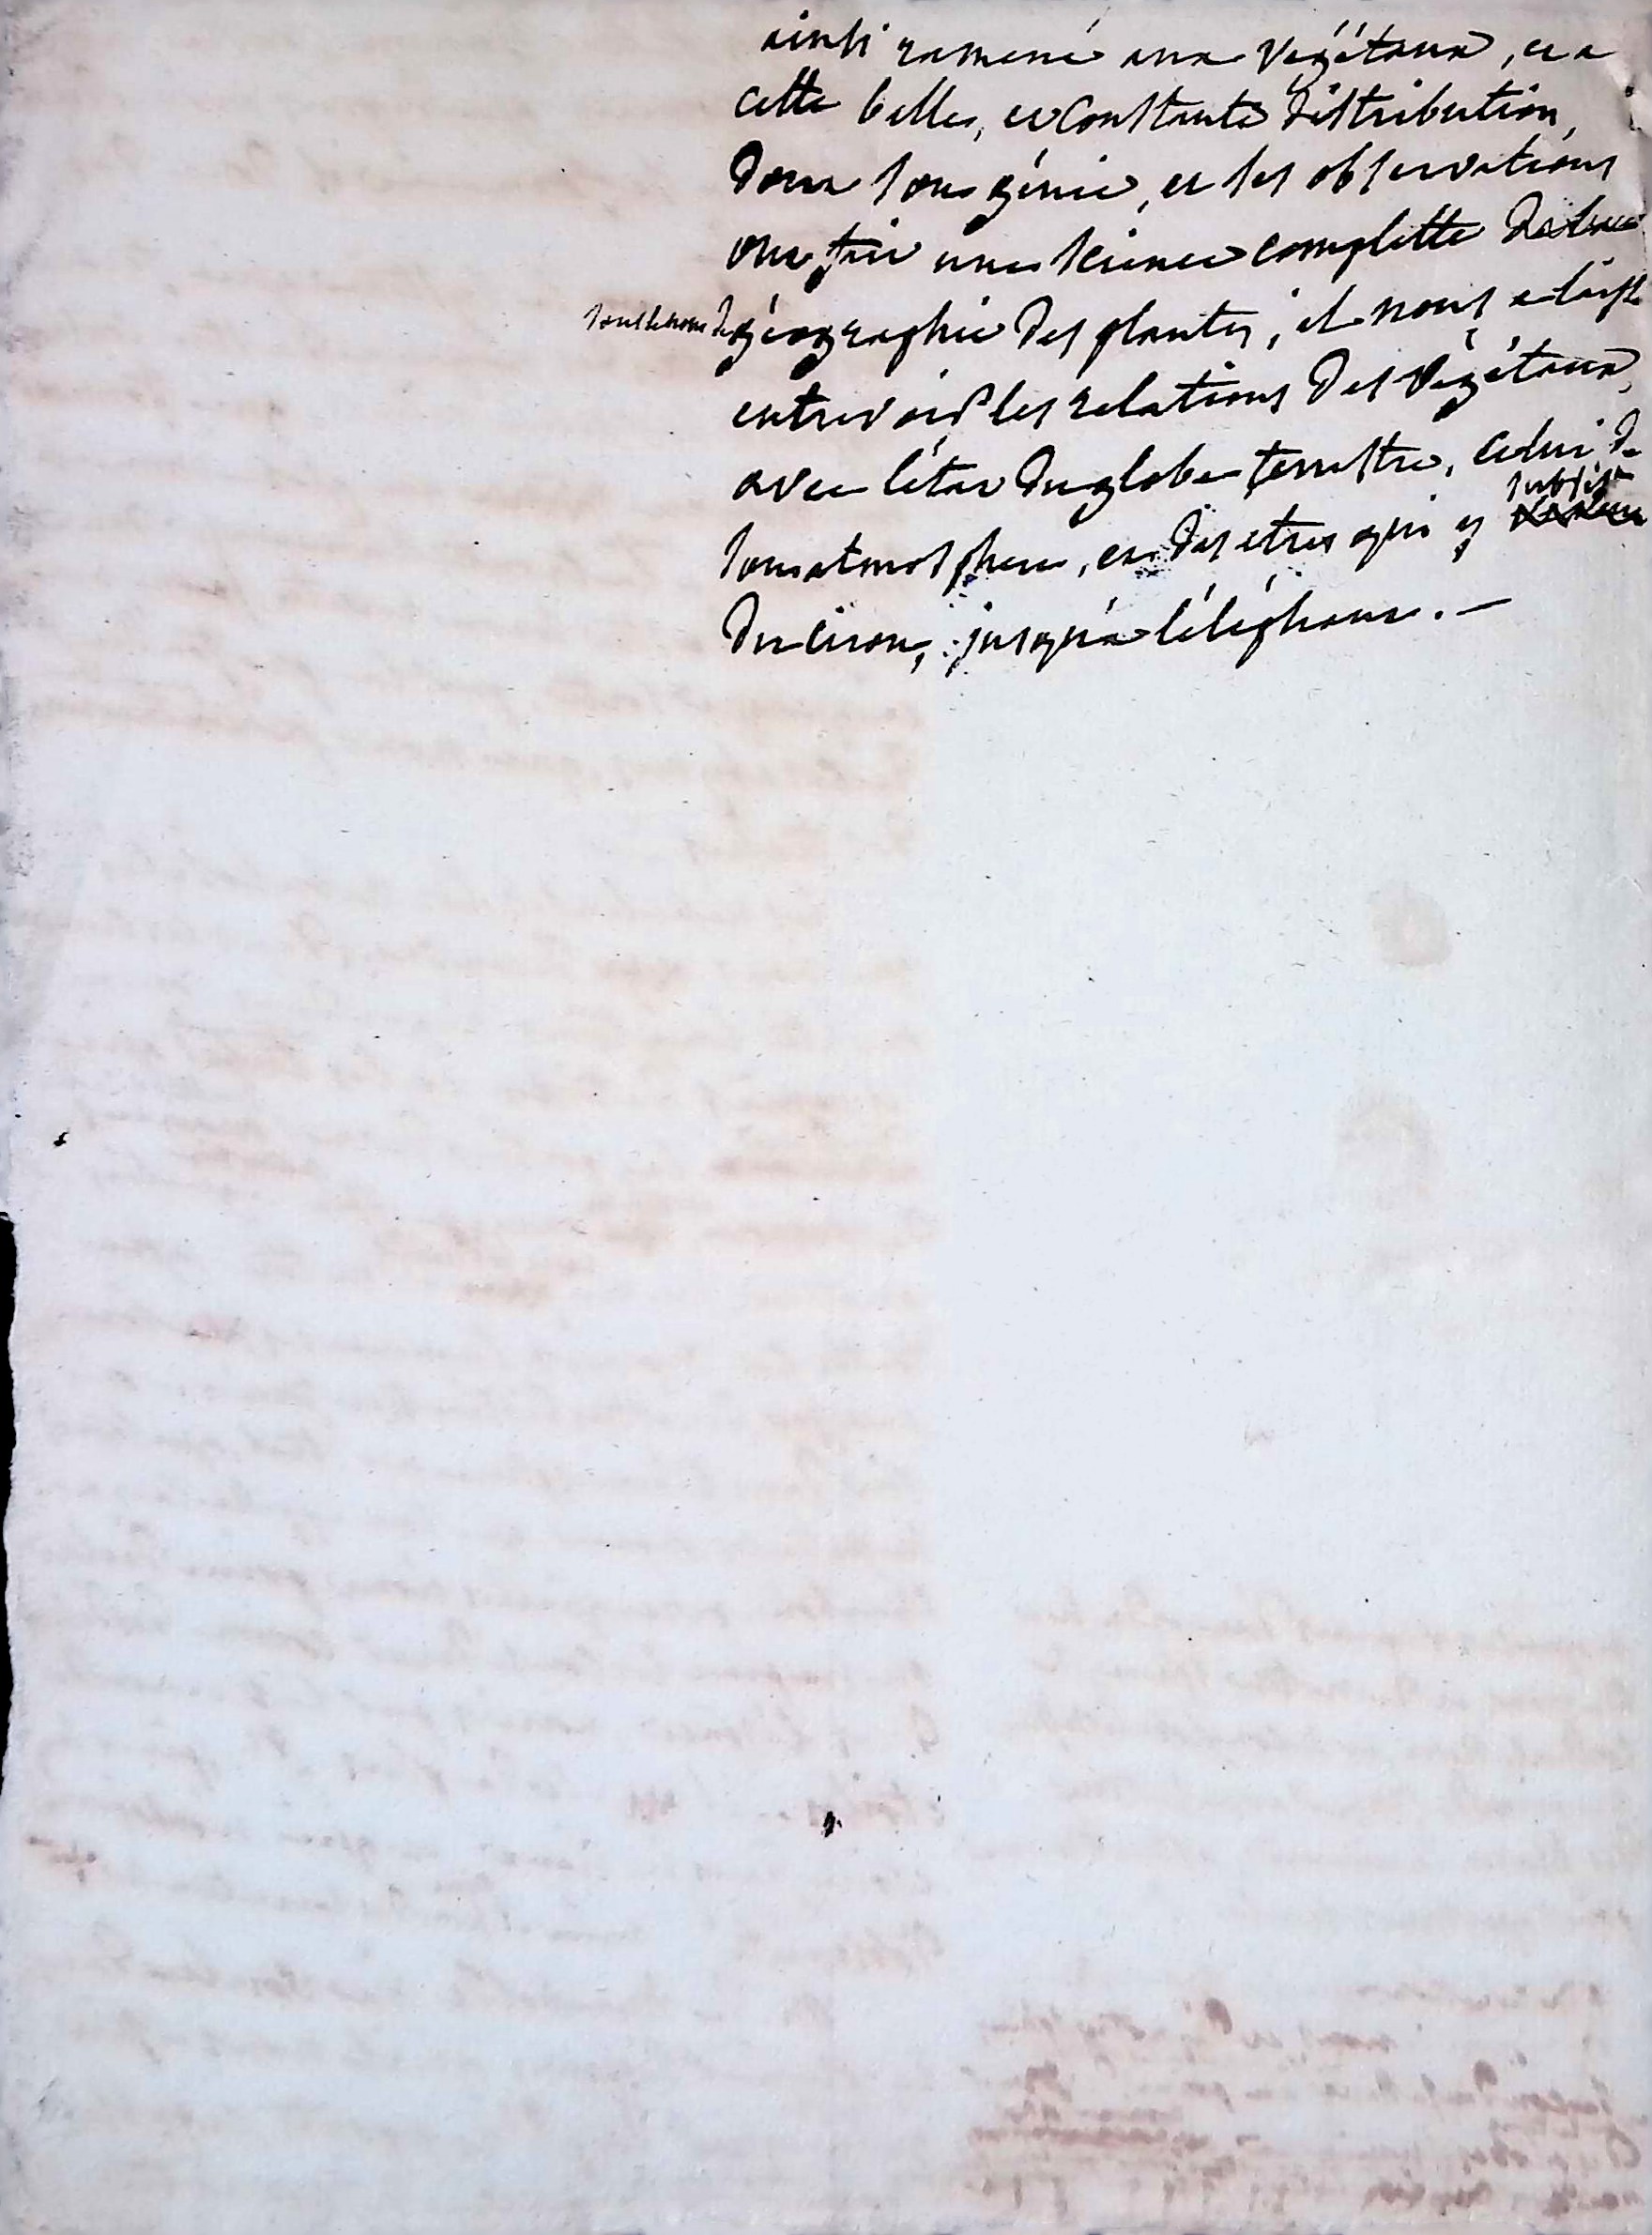 ainsi ramené aux végétaux, et a
cette belle, et constante distribution,
dont son génie, et ses observations
ont fait une science complette
sous le nom de géographie des plantes; il nous a laissé
entrevoir les relations des végétaux,
avec l'état du globe terrestre, celui de
son atmosphere, et des etres qui y subsist
du ciron, jusqu'a l'éléphant. —